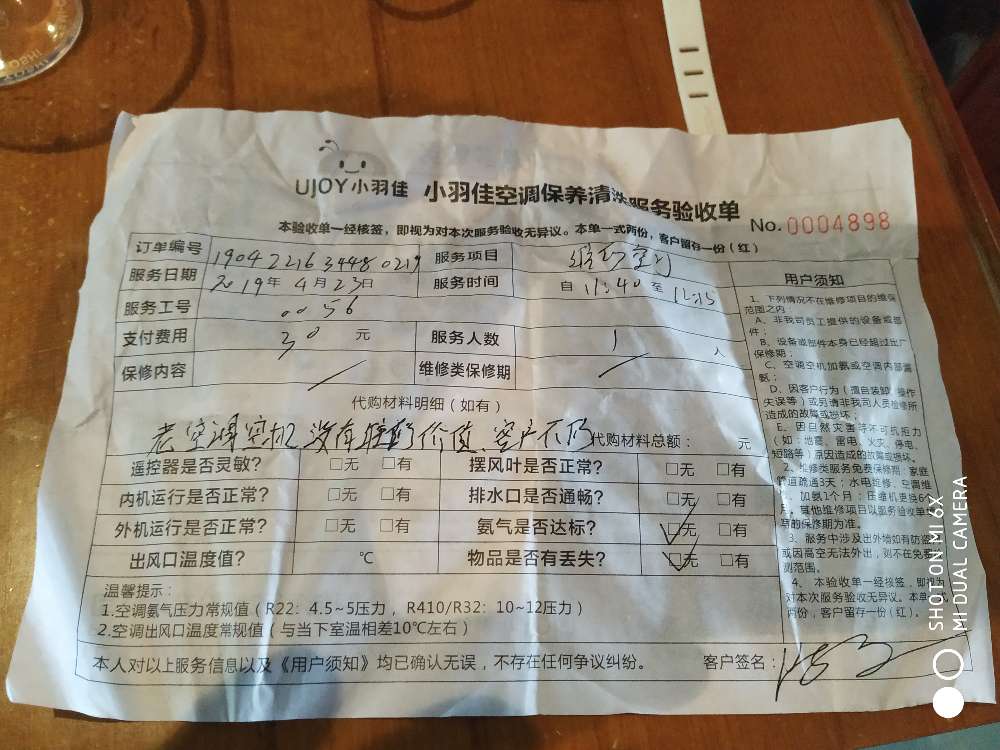 UJOY小羽佳 小羽佳空调保养清洗服务验收单
No. 0004898
本验收单一经核签，即视为对本次服务验收无异议。本单一式两份，客户留存一份（红）
订单编号 190422163448 0219 服务项目
服务日期 2019年4月23日 服务时间 自 11:40 至 12:15
服务工号 0056
支付费用 30 元 服务人数 1 人
保修内容 / 维修类保修期 /
代购材料明细（如有）
老空调 没有 价值、客户不 代购材料总额： 元
遥控器是否灵敏? □无 □有 摆风叶是否正常? □无 □有
内机运行是否正常? □无 □有 排水口是否通畅? □无 □有
外机运行是否正常? □无 □有 氨气是否达标? □无 □有
出风口温度值? ℃ 物品是否有丢失? □无 □有
温馨提示：
1.空调氨气压力常规值（R22：4.5~5压力，R410/R32：10~12压力）
2.空调出风口温度常规值（与当下室温相差10℃左右）
本人对以上服务信息以及《用户须知》均已确认无误，不存在任何争议纠纷。 客户签名：
用户须知
1、下列情况不在维修项目的维保
范围之内
A、非我司员工提供的设备或部
件；
B、设备或部件本身已经超过出厂
保修期；
C、空调空机加氨或空调内部漏
氨；
D、因客户行为（擅自装卸、操作
失误等）或另请非我司人员检修所
造成的故障或损坏；
E、因自然灾害等不可抗拒力
（如：地震、雷电、火灾、停电、
短路等）原因造成的故障或损坏。
2、维修类服务免费保修期：家庭
管道疏通3天；水电维修、空调维
、加氨1个月；压缩机更换6个
月。其他维修项目以服务验收单
写的保修期为准。
3、服务中涉及出外墙如有防盗
或因高空无法外出，则不在免费
测范围。
4、本验收单一经核签，即视为
对本次服务验收无异议。本单一式
两份，客户留存一份（红）。
SHOT ON MI 6X
MI DUAL CAMERA